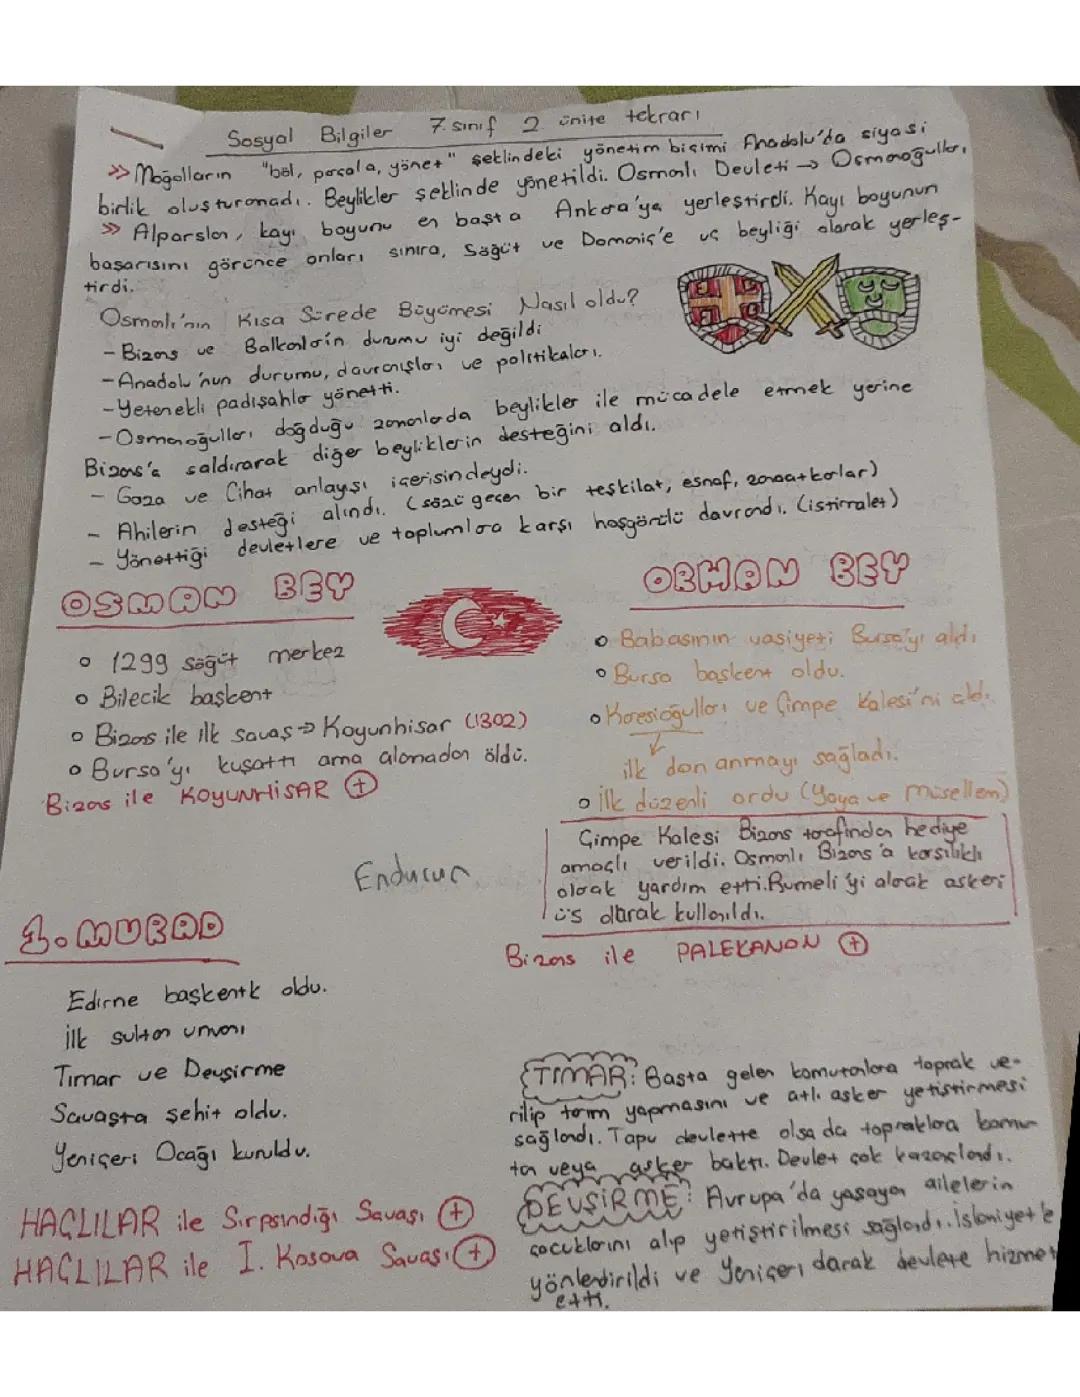 Sosyal Bilgiler 7. sınıf 2. ünite tekrarı
>> Moğolların "böl, parçala, yönet" şeklindeki yönetim biçimi Anadolu'da siyasi
birlik oluşturamadı. Beylikler şeklinde yönetildi. Osmanlı Devleti → Osmanoğulları
>> Alparslan, kayı boyunu en başta Ankara'ya yerleştirdi. Kayı boyunun
başarısını görünce onları sınıra, Söğüt ve Domaniç'e uç beyliği olarak yerleş-
tirdi.
Osmanlı'nın Kısa Sürede Büyümesi Nasıl oldu?
- Bizans ve Balkanların durumu iyi değildi
- Anadolu'nun durumu, davranışları ve politikaları.
- Yetenekli padişahlar yönetti.
- Osmanoğulları doğduğu zamanlarda beylikler ile mücadele etmek yerine
Bizans'a saldırarak diğer beyliklerin desteğini aldı.
- Gaza ve Cihat anlayışı içerisindeydi.
- Ahilerin desteği alındı. (sözü geçen bir teşkilat, esnaf, zanaatkarlar)
- Yönettiği devletlere ve toplumlara karşı hoşgörülü davrandı. (istimalet)
OSMAN BEY
o 1299 söğüt merkez
o Bilecik başkent
o Bizans ile ilk savaş → Koyunhisar (1302)
o Bursa'yı kuşattı ama alamadan öldü.
Bizans ile KOYUNHİSAR (+)
ORHAN BEY
o Babasının vasiyeti Bursa'yı aldı
o Bursa başkent oldu.
o Karesioğulları ve Çimpe Kalesi'ni aldı.
ilk donanmayı sağladı.
o İlk düzenli ordu (Yaya ve müsellem)
Çimpe Kalesi Bizans tarafından hediye
amaçlı verildi. Osmanlı Bizans'a karşılıklı
olarak yardım etti. Rumeli'yi alarak askeri
üs olarak kullanıldı.
Bizans ile PALEKANON (+)
Endurun
1. MURAD
Edirne başkentk oldu.
İlk sultan unvanı
Tımar ve Devşirme
Savaşta şehit oldu.
Yeniçeri Ocağı kuruldu.
HAÇLILAR ile Sırpsındığı Savaşı (+)
HAÇLILAR ile I. Kosova Savaşı (+)
TIMAR: Başta gelen komutanlara toprak ve-
rilip tarım yapmasını ve atlı asker yetiştirmesi
sağlandı. Tapu devlette olsa da topraklara komu-
tan veya asker baktı. Devlet çok kazançlandı.
DEVŞİRME: Avrupa'da yaşayan ailelerin
çocuklarını alıp yetiştirilmesi sağlandı. İslamiyet'e
yönlendirildi ve Yeniçeri olarak devlete hizmet
etti.